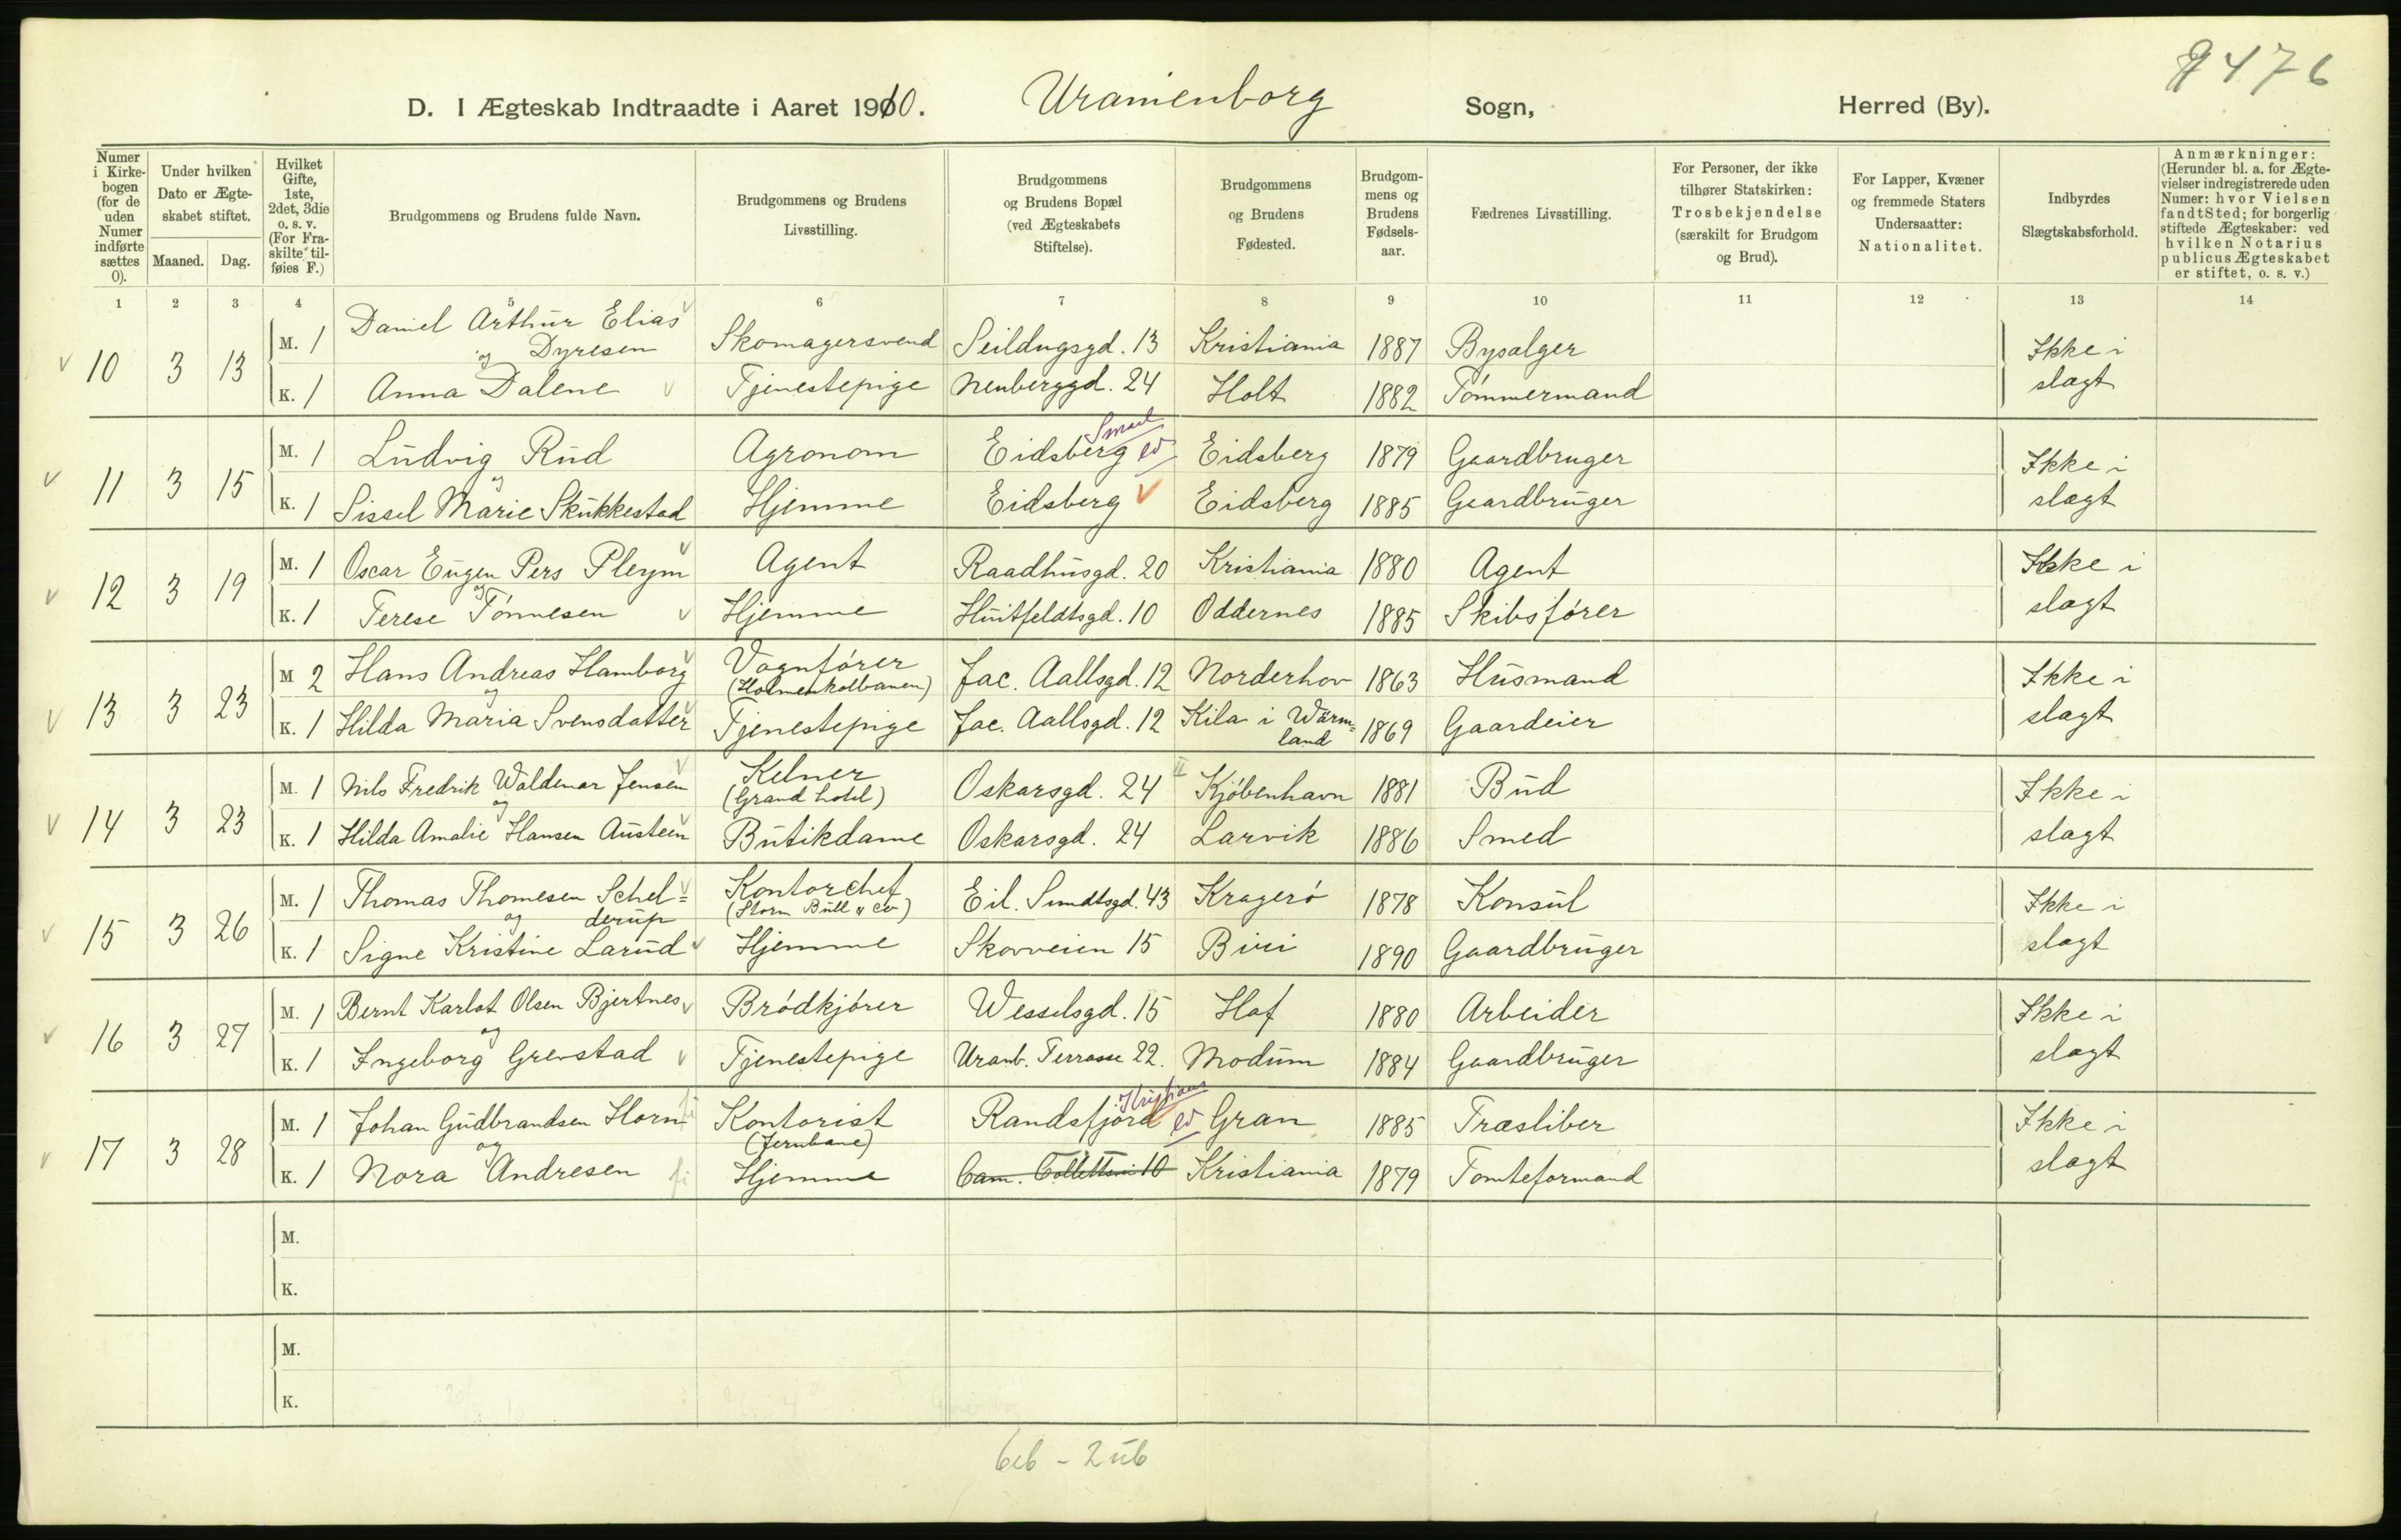 8476
D. I Ægteskab Indtraadte i Aaret 1910. Uranienborg Sogn, Herred (By).
Numer i Kirkebogen (for de uden Numer indførte sættes 0).
Under hvilken Dato er Ægteskabet stiftet.
Maaned. Dag.
Hvilket Gifte, 1ste, 2det, 3die o. s. v. (For Fraskilte tilføies F.)
Brudgommens og Brudens fulde Navn.
Brudgommens og Brudens Livsstilling.
Brudgommens og Brudens Bopæl (ved Ægteskabets Stiftelse).
Brudgommens og Brudens Fødested.
Brudgommens og Brudens Fødselsaar.
Fædrenes Livsstilling.
For Personer, der ikke tilhører Statskirken: Trosbekjendelse (særskilt for Brudgom og Brud).
For Lapper, Kvæner og fremmede Staters Undersaatter: Nationalitet.
Indbyrdes Slægtskabsforhold.
Anmærkninger: (Herunder bl. a. for Ægtevielser indregistrerede uden Numer: hvor Vielsen fandt Sted; for borgerlig stiftede Ægteskaber: ved hvilken Notarius publicus Ægteskabet er stiftet, o. s. v.)
1 2 3 4 5 6 7 8 9 10 11 12 13 14
10 3 13 M. 1 Daniel Arthur Elias Dyresen Skomagersvend Seildugsgd. 13 Kristiania 1887 Bysælger Ikke i slægt
og
K. 1 Anna Dalene Tjenestepige Neuberggd. 24 Holt 1882 Tømmermand
11 3 15 M. 1 Ludvig Rud Agronom Eidsberg Smaal Eidsberg 1879 Gaardbruger Ikke i slægt
og
K. 1 Sissel Marie Skukkestad Hjemme Eidsberg Eidsberg 1885 Gaardbruger
12 3 19 M. 1 Oscar Eugen Pers Pleym Agent Raadhusgd. 20 Kristiania 1880 Agent Ikke i slægt
og
K. 1 Terese Tønnesen Hjemme Huitfeldtsgd. 10 Oddernes 1885 Skibsfører
13 3 23 M 2 Hans Andreas Hamborg Vognfører (Holmenkolbanen) Jac. Aallsgd. 12 Norderhov 1863 Husmand Ikke i slægt
og
K. 1 Hilda Maria Svensdatter Tjenestepige Jac. Aallsgd. 12 Kila i Wärmland 1869 Gaardeier
14 3 23 M. 1 Nils Fredrik Waldemar Jensen Kelner (Grand hotel) Oskarsgd. 24 Kjøbenhavn 1881 Bud Ikke i slægt
og
K. 1 Hilda Amalie Hansen Austeen Butikdame Oskarsgd. 24 Larvik 1886 Smed
15 3 26 M. 1 Thomas Thomesen Schelderup Kontorchef (Storm Bull & Co) Eil. Sundtsgd. 43 Kragerø 1878 Konsul Ikke i slægt
og
K. 1 Signe Kristine Larud Hjemme Skovveien 15 Biri 1890 Gaardbruger
16 3 27 M. 1 Bernt Karlot Olsen Bjertnes Brødkjører Wesselsgd. 15 Hof 1880 Arbeider Ikke i slægt
og
K. 1 Ingeborg Grevstad Tjenestepige Uranb. Terrasse 22. Modum 1884 Gaardbruger
17 3 28 M. 1 Johan Gudbrandsen Horn Kontorist (Jernbane) Randsfjord Kristians Gran 1885 Træsliber Ikke i slægt
og
K. 1 Nora Andresen Hjemme Cam. Collettsvei 10 Kristiania 1879 Tomteformand
M.
K.
M.
K.